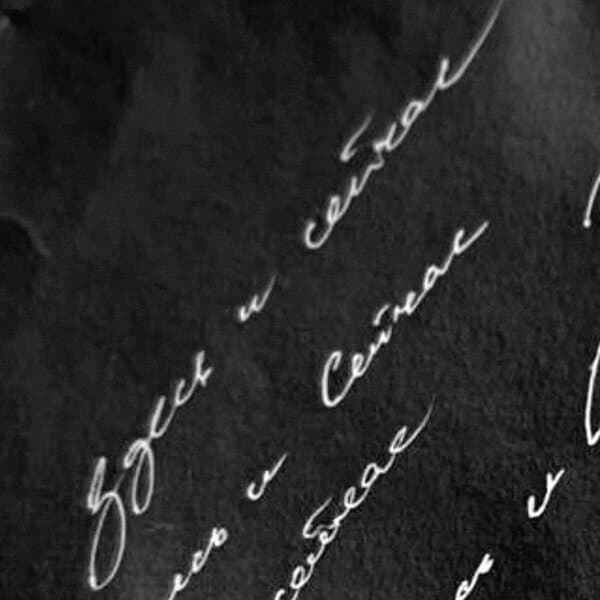 Здесь и сейчас
и Сейчас
сейчас
и